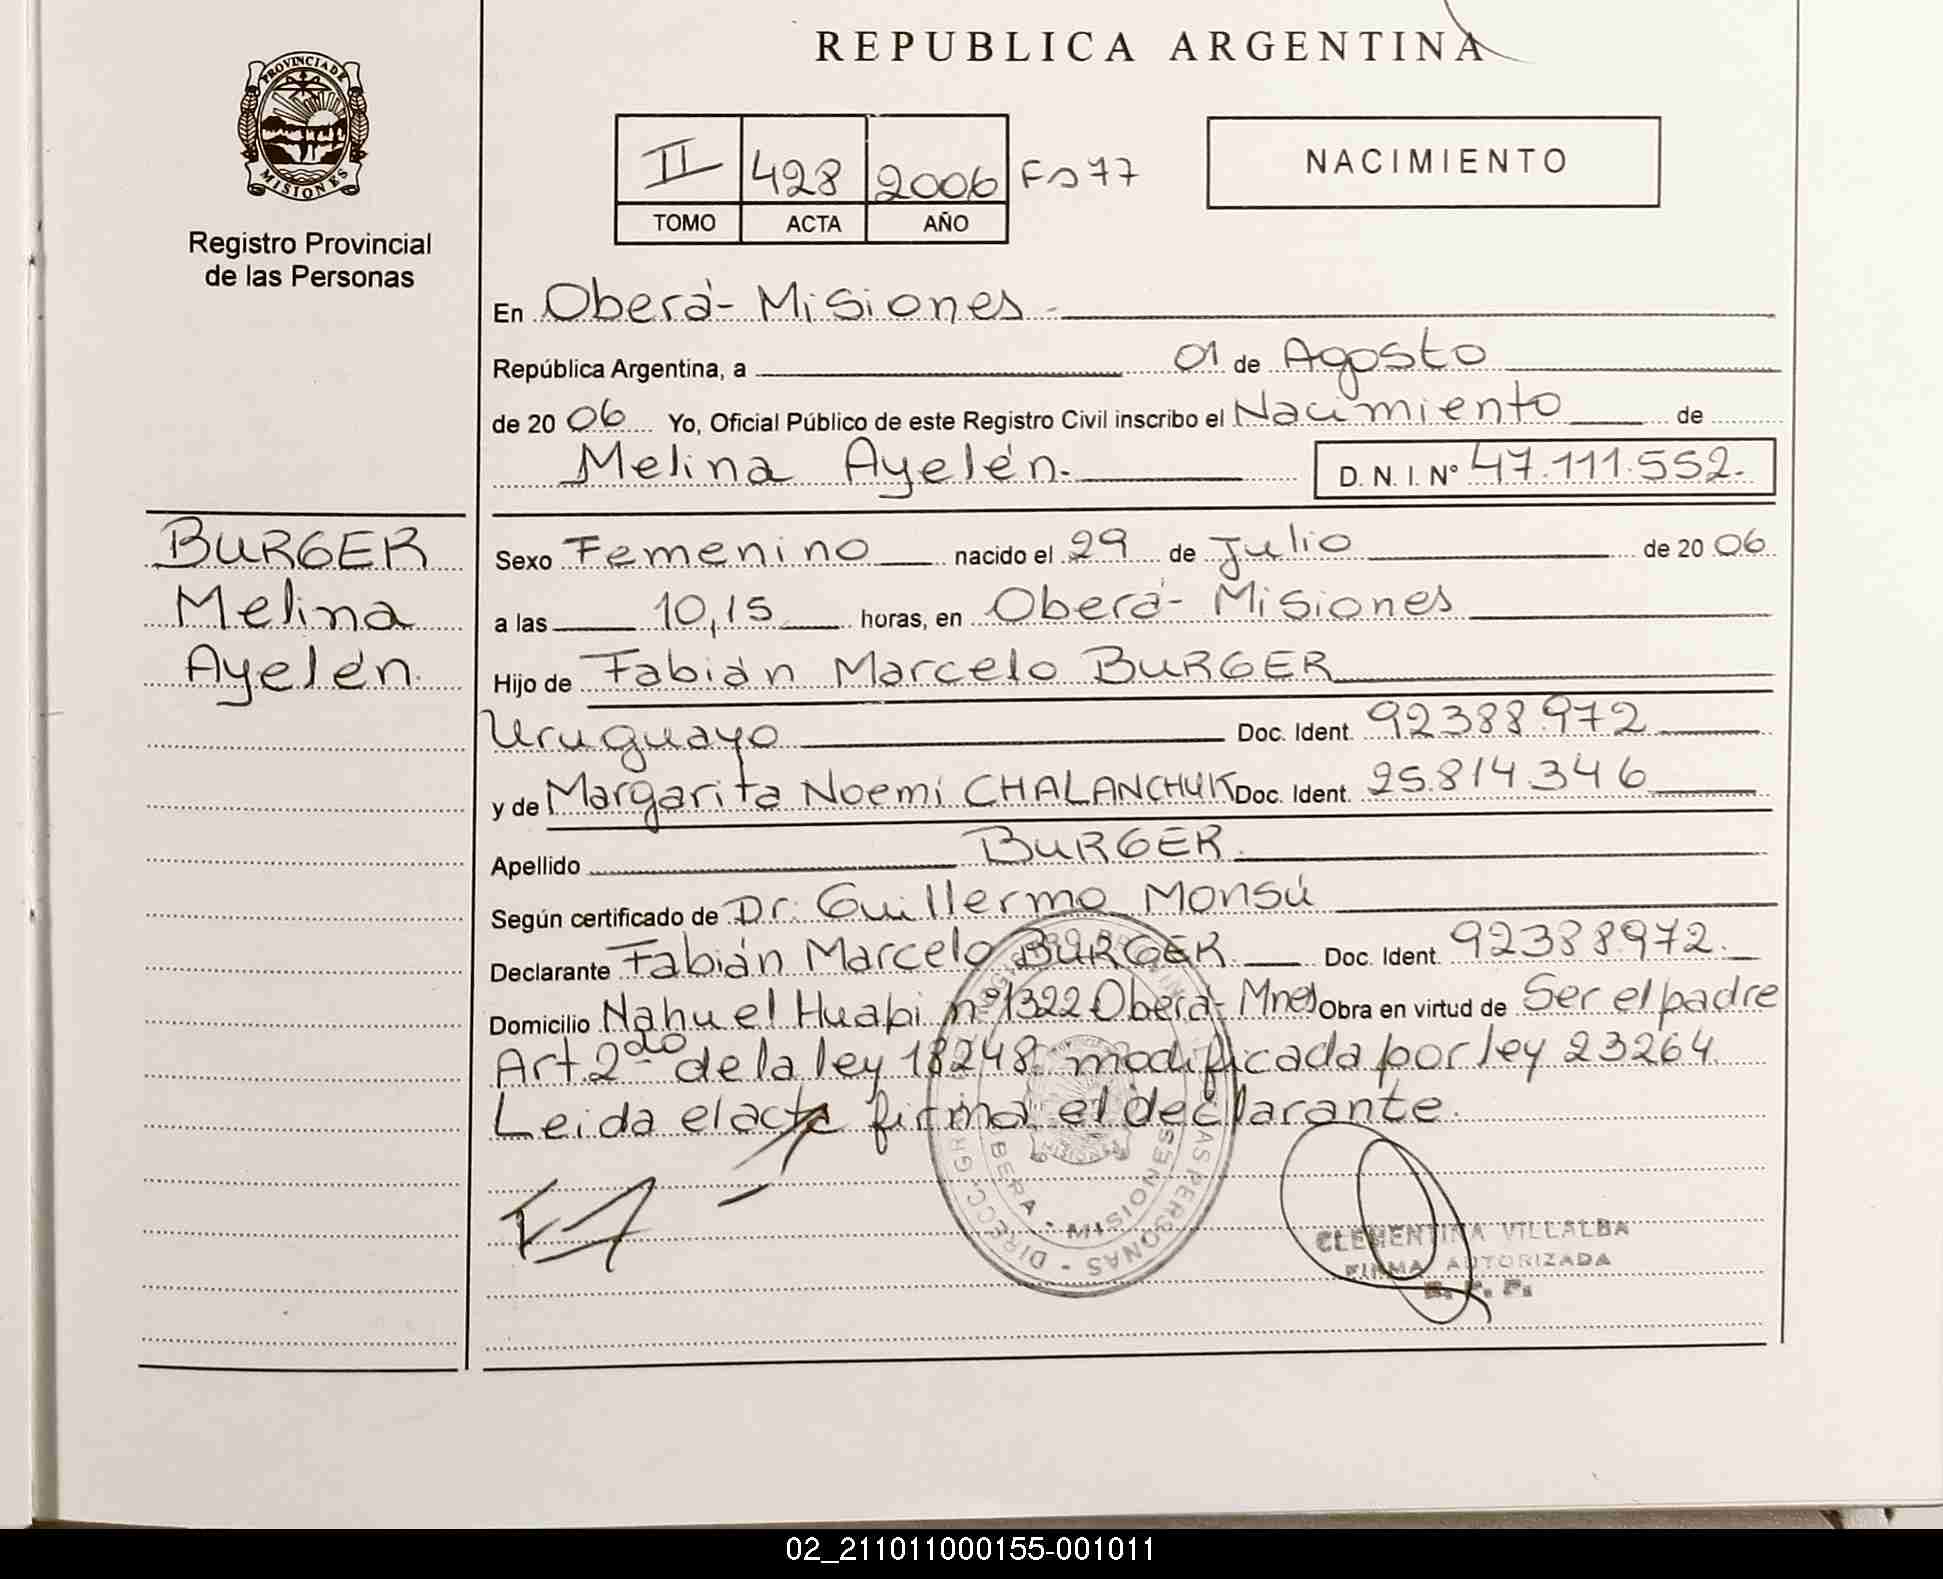 REPUBLICA ARGENTINA
PROVINCIA DE
MISIONES
Registro Provincial
de las Personas
II 428 2006 Fo 77
TOMO ACTA AÑO
NACIMIENTO
En Oberá - Misiones
República Argentina, a 01 de Agosto
de 2006 Yo, Oficial Público de este Registro Civil inscribo el Nacimiento de
Melina Ayelén. D. N. I. Nº 47.111.552.
BURGER
Melina
Ayelén.
Sexo Femenino nacido el 29 de Julio de 2006
a las 10,15 horas, en Oberá - Misiones
Hijo de Fabián Marcelo BURGER
Uruguayo Doc. Ident. 92388972
y de Margarita Noemí CHALANCHUK Doc. Ident. 25.814.346
Apellido BURGER.
Según certificado de Dr. Guillermo Monsú
Declarante Fabián Marcelo BURGER. Doc. Ident. 92388972.
Domicilio Nahuel Huapi nº 1322 Oberá - Mnes Obra en virtud de Ser el padre
Art. 2do de la ley 18248 modificada por ley 23264.
Leida el acta firma el declarante.
DIRECC. GRAL. PERSONAS
OBERA - MISIONES
CLEMENTINA VILLALBA
FIRMA AUTORIZADA
R. P. P.
02_211011000155-001011